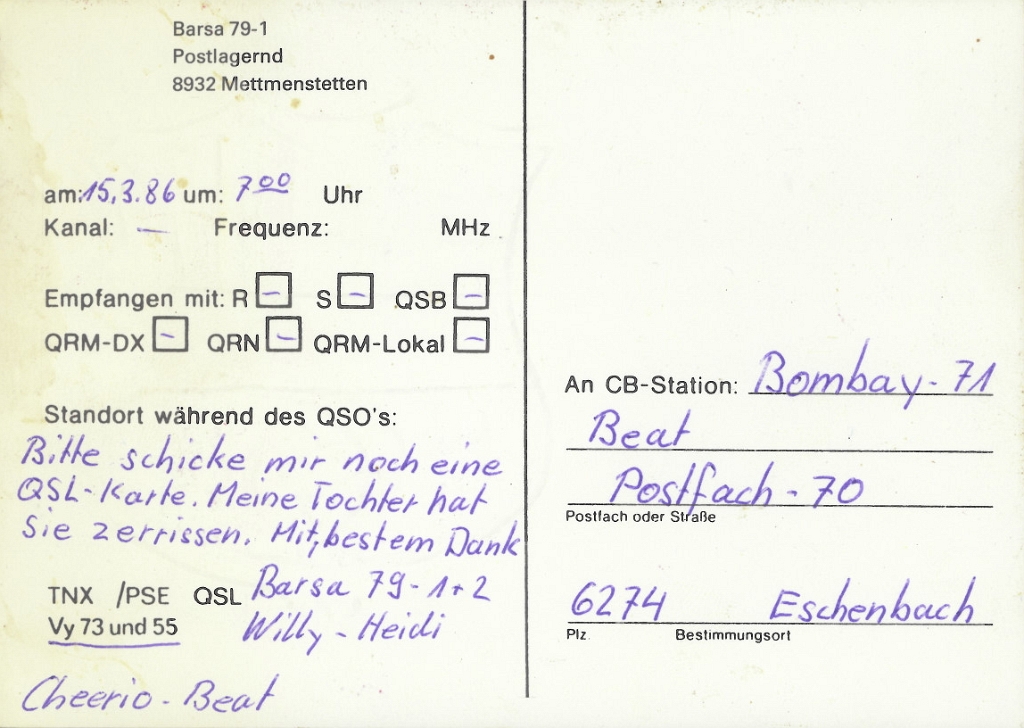 Barsa 79-1
Postlagernd
8932 Mettmenstetten
am: 15.3.86 um: 7⁰⁰ Uhr
Kanal: — Frequenz: MHz
Empfangen mit: R – S – QSB –
QRM-DX – QRN – QRM-Lokal –
Standort während des QSO's:
Bitte schicke mir noch eine
QSL-Karte. Meine Tochter hat
Sie zerrissen. Mit bestem Dank
TNX /PSE QSL Barsa 79-1+2
Vy 73 und 55 Willy - Heidi
Cheerio - Beat
An CB-Station: Bombay-71
Beat
Postfach-70
Postfach oder Straße
6274 Eschenbach
Plz. Bestimmungsort